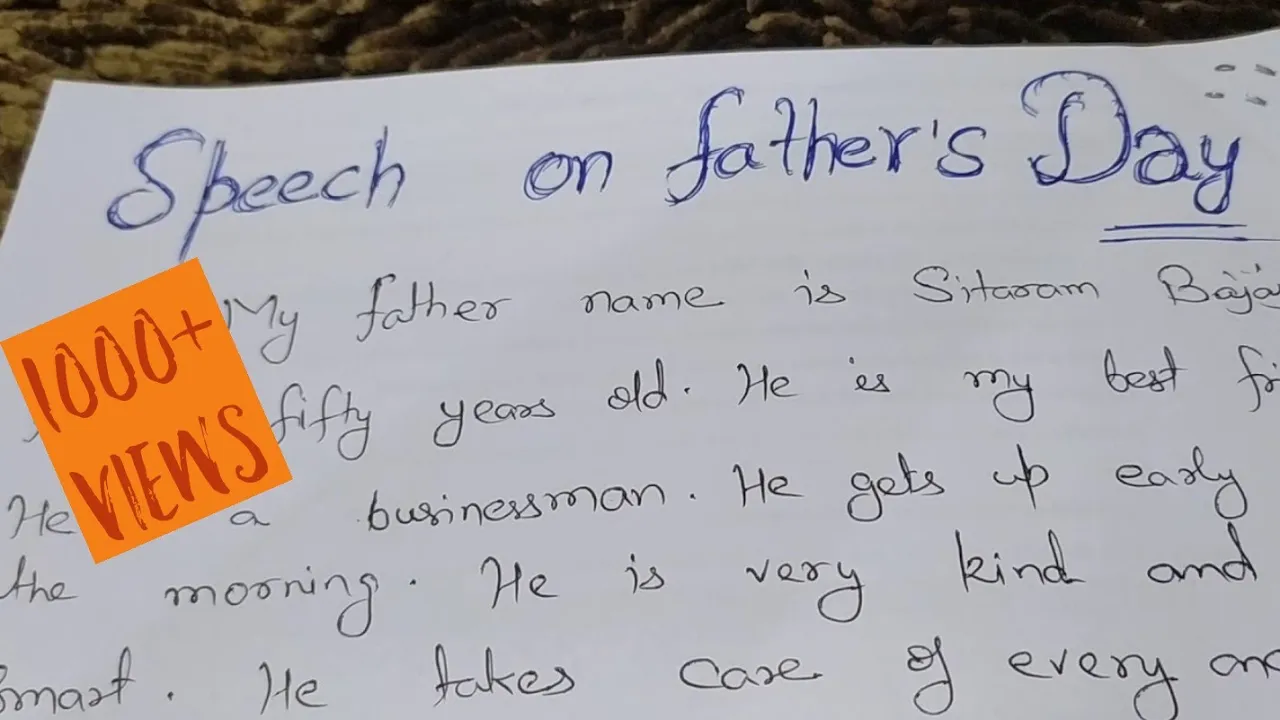 Speech on father's Day
My father name is Sitaram
fifty years old. He is my best
He a businessman. He gets up early
the morning. He is very kind and
smart. He takes care of every
1000+
VIEWS